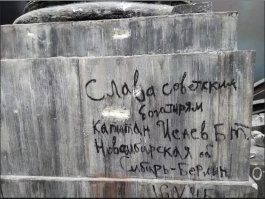 Слава советским
богатирям
Капитан Исаев Б.Т.
Новосибирская об
Сибирь-Берлин